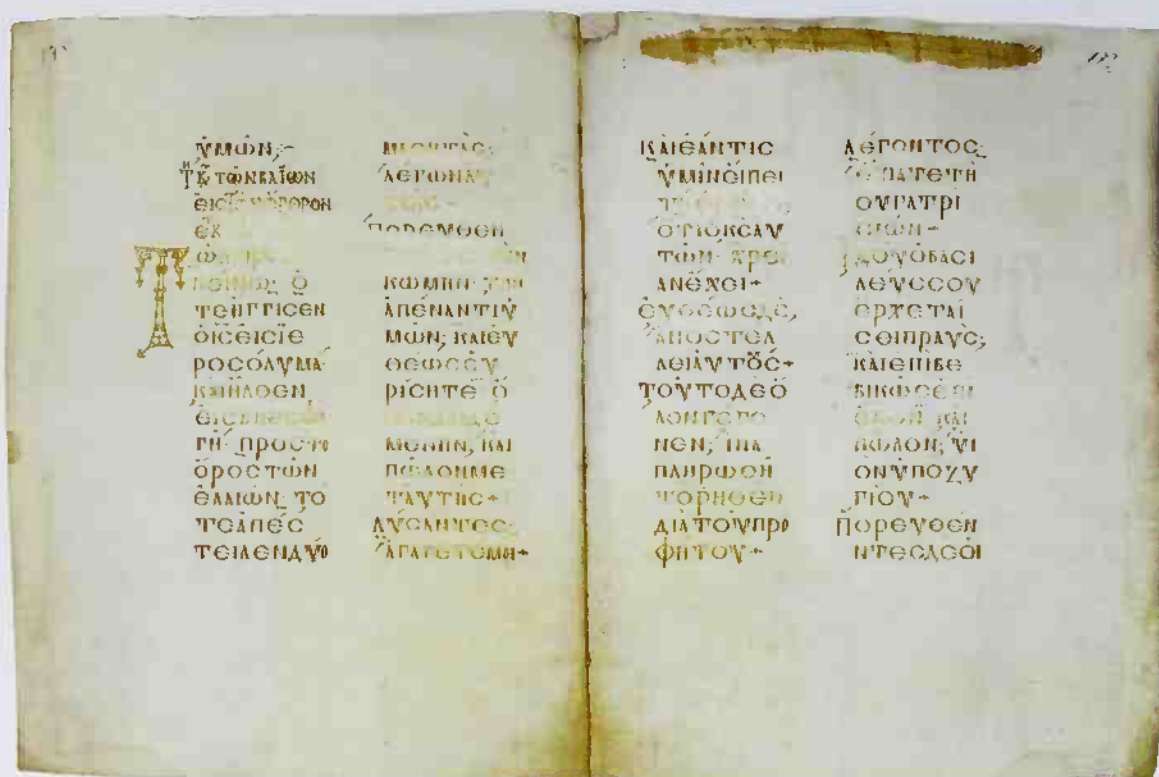 ὑμῶν;-
Τῇ Κ͞ τῶν βαΐων
εἰς τὸν ὄρθρον
ἐκ
ὅτε ἤγγισεν
ὁ ι͞ς εἰς ἱε
ροσόλυμα
καὶ ἦλθεν
γῆ· πρὸς τὸ
ὄρος τῶν
ἐλαιῶν· τό
τε ἀπέσ
τειλεν δύο
μαθητὰς·
λέγων
πορεύθητε
κώμην τὴν
ἀπέναντι ὑ
μῶν; καὶ εὐ
θέως εὑ
ρίσητε ὄ
μένην, καὶ
πῶλον με
τ'αὐτῆς+
λύσαντες·
ἀγάγετέ μοι+
καὶ ἐάν τις
ὑμῖν εἴπει
ὅτι ὁ κ͞ς αὐ
τῶν χρεί
αν ἔχει+
εὐθέως δὲ,
ἀποστελ
λει αὐτούς+
τοῦτο δὲ ὅ
λον γέγο
νεν; ἵνα
πληρωθῆ
τὸ ῥηθὲν
διὰ τοῦ προ
φήτου+
λέγοντος·
εἴπατε τῆ
θυγατρὶ
σιών+
ἰδοὺ ὁ βασι
λεύς σου
ἔρχεταί
σοι πραΰς;
καὶ ἐπιβε
βικὼς ἐπὶ
ὄνον καὶ
πῶλον; υἱ
ὸν ὑποζυ
γίου+
πορευθέν
ντες δὲ οἱ